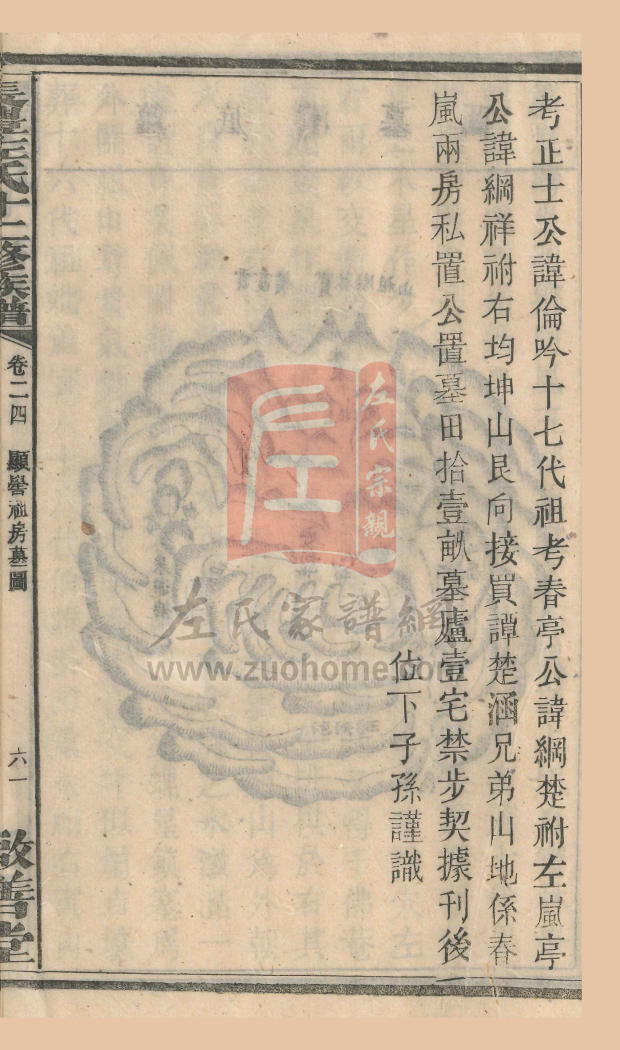 考正士公諱倫吟十七代祖考春亭公諱綱楚祔左嵐亭
公諱綱祥祔右均坤山艮向接買譚楚涵兄弟山地係春
嵐兩房私置公置墓田拾壹畝墓廬壹宅禁步契據刊後
位下子孫謹識
左氏十二修族譜
卷二四
顯譽祖房墓圖
六一
啟善堂
左氏宗親
左氏家譜網
www.zuohome.com